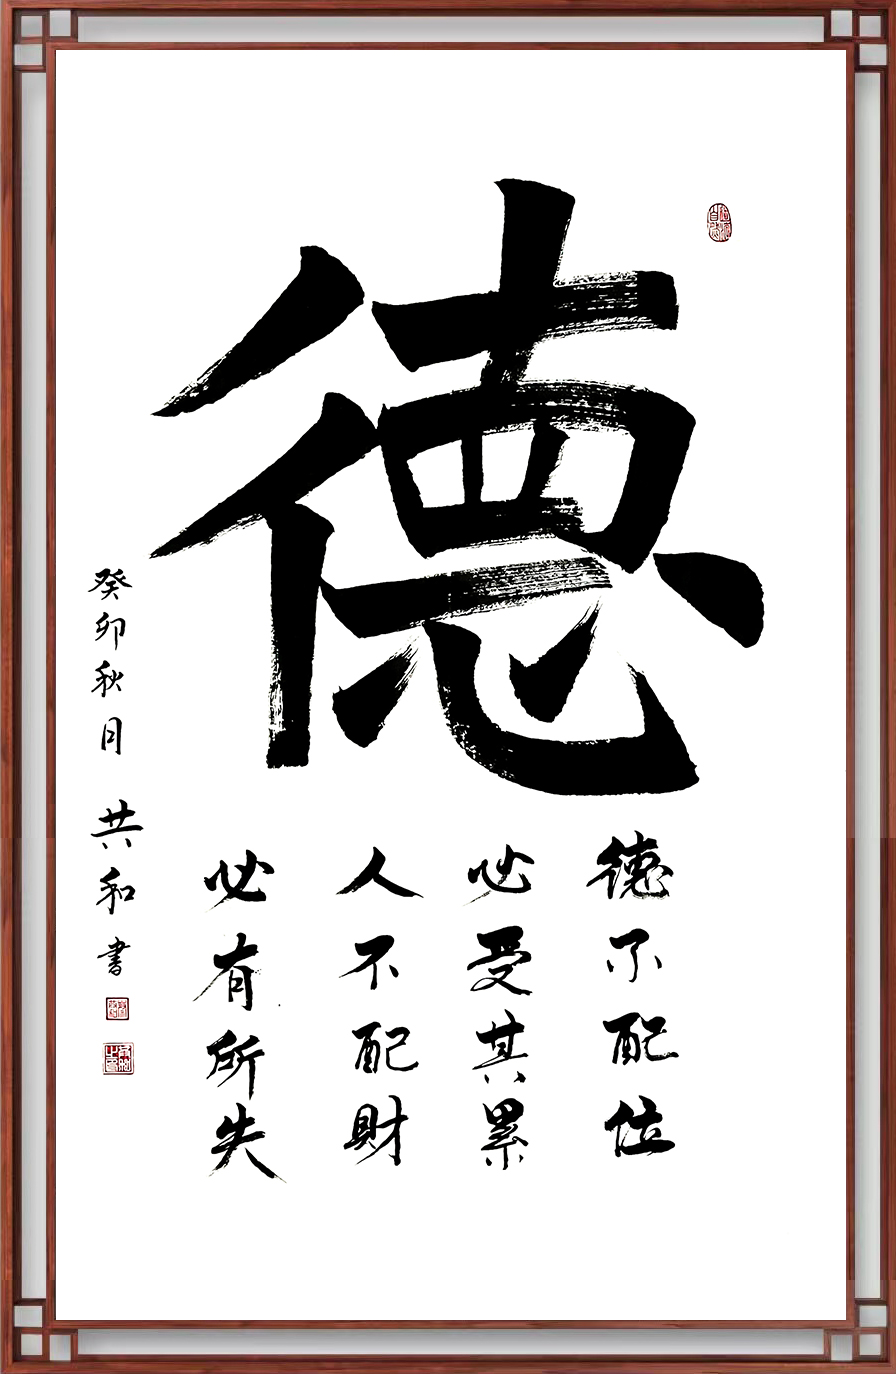 德
德不配位
必受其累
人不配財
必有所失
癸卯秋月 共和書